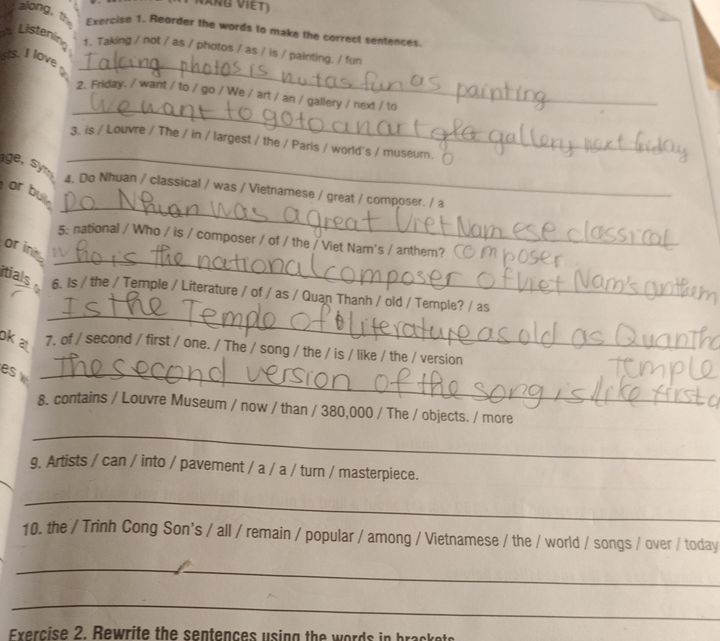 NANG VIET)
along, the
Exercise 1. Reorder the words to make the correct sentences.
Listening
1. Taking / not / as / photos / as / is / painting. / fun
sts. I love
Taking photos is not as fun as painting
2. Friday. / want / to / go / We / art / an / gallery / next / to
We want to go to an art gallery next friday
3. is / Louvre / The / in / largest / the / Paris / world's / museum.
age, sym
4. Do Nhuan / classical / was / Vietnamese / great / composer. / a
or buil
Do Nhuan was a great Viet Nam ese classical
composer
5: national / Who / is / composer / of / the / Viet Nam's / anthem?
or initi
who is the national composer of Viet Nam's anthem
itials
6. Is / the / Temple / Literature / of / as / Quan Thanh / old / Temple? / as
Is the Temple of literature as old as Quanth
temple
ok at
7. of / second / first / one. / The / song / the / is / like / the / version
es
The second version of the song is like first
8. contains / Louvre Museum / now / than / 380,000 / The / objects. / more
9. Artists / can / into / pavement / a / a / turn / masterpiece.
10. the / Trinh Cong Son's / all / remain / popular / among / Vietnamese / the / world / songs / over / today
Exercise 2. Rewrite the sentences using the words in brackets